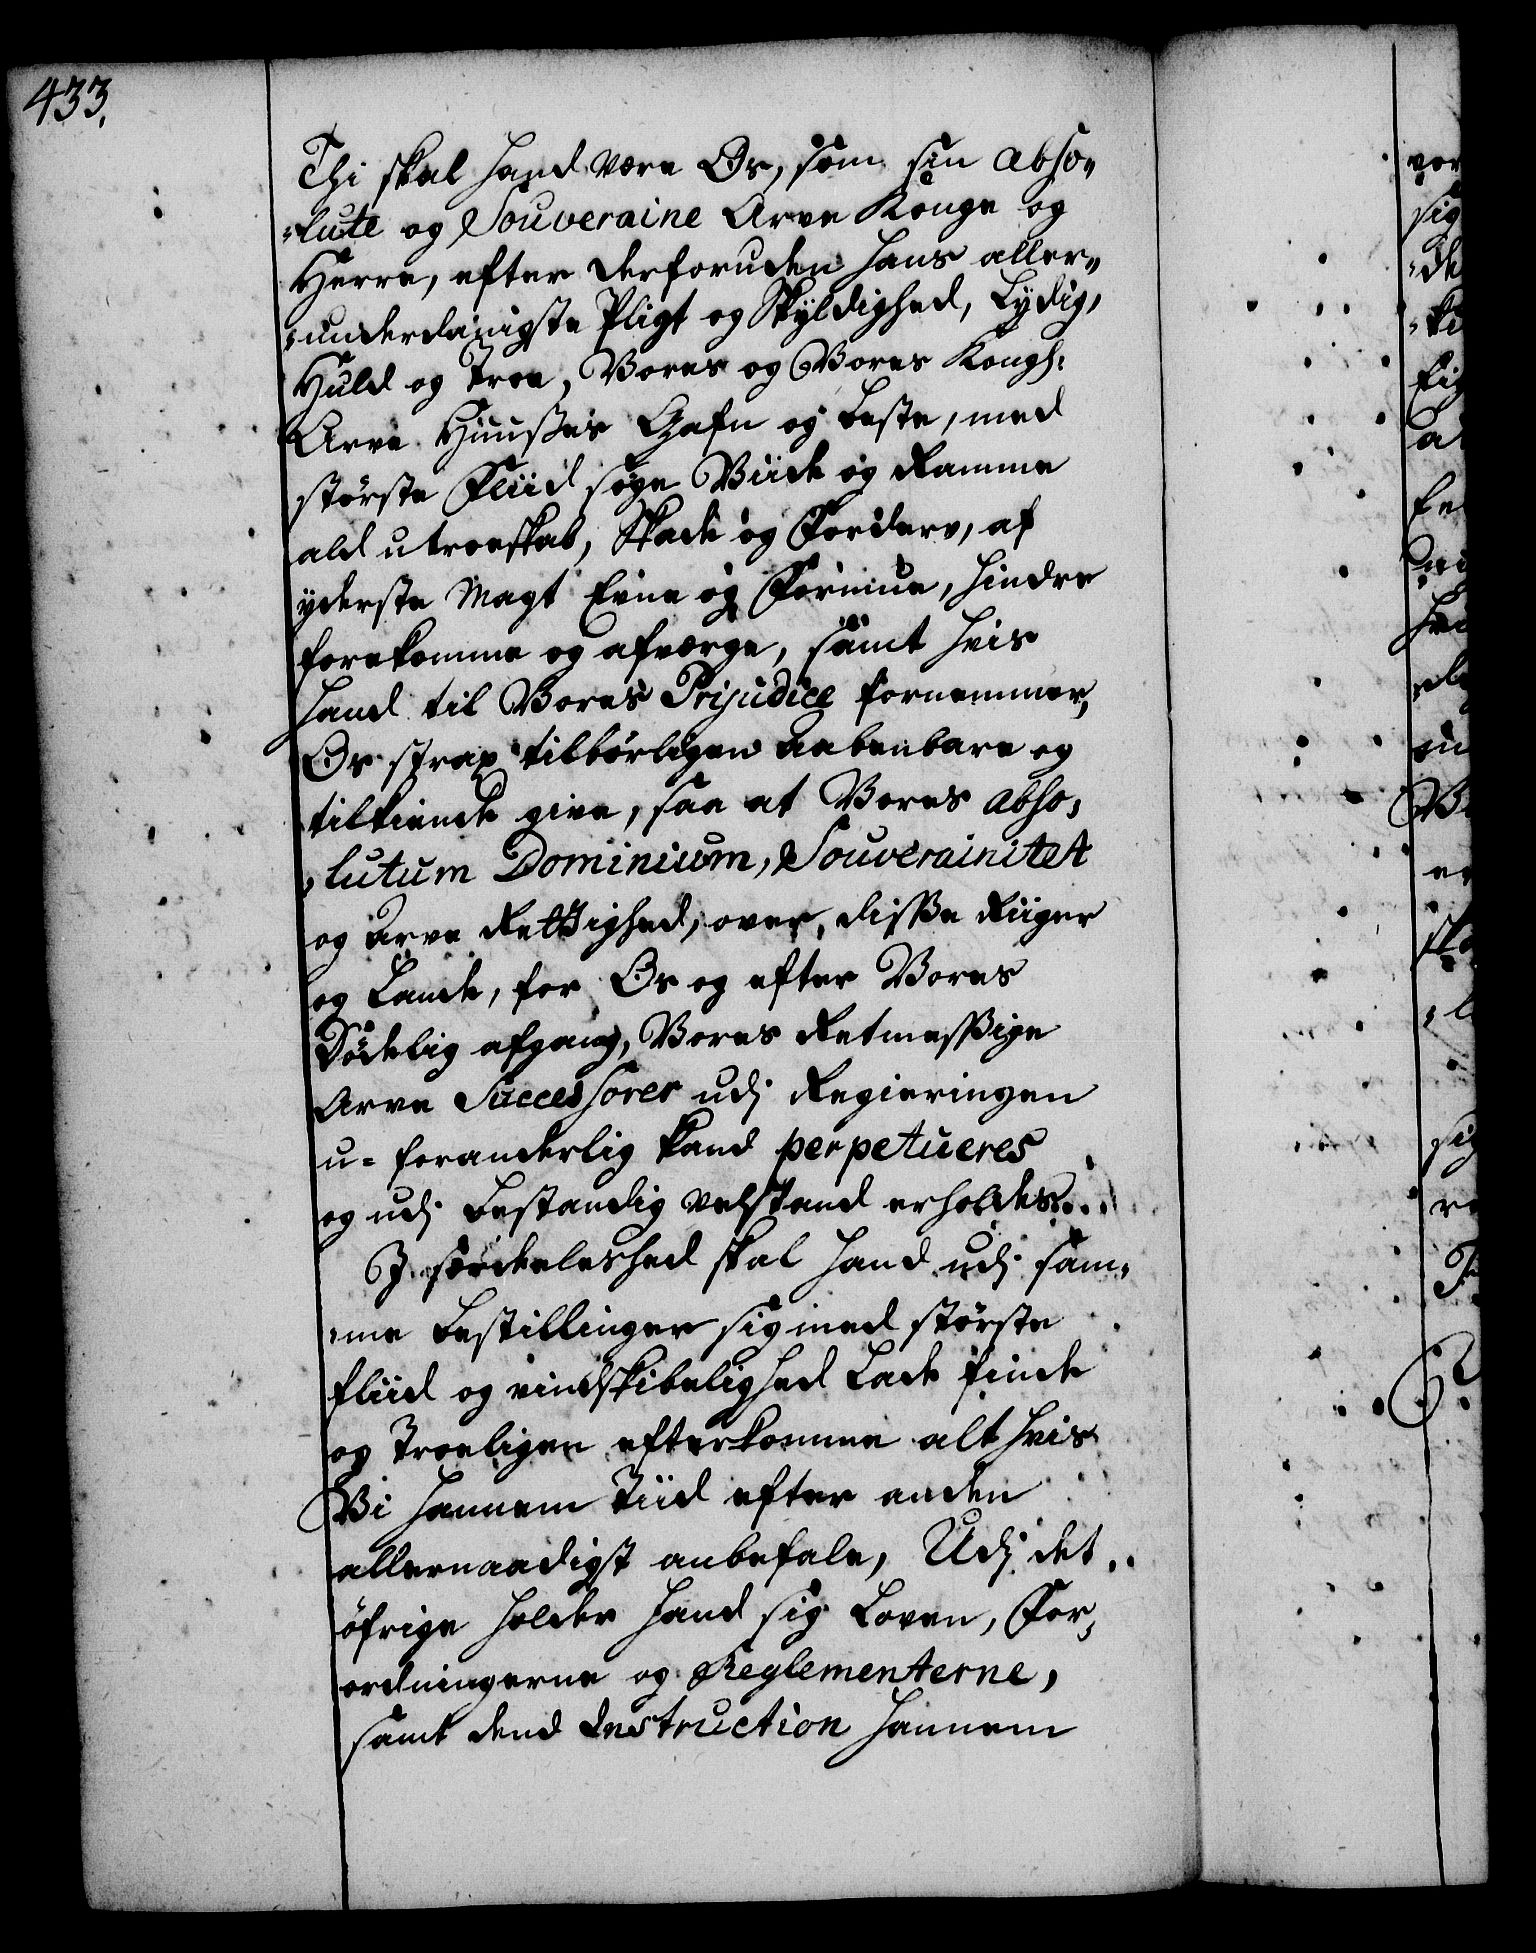 433.
Thi skal hand være Os, som sin abso„
„lute og Souveraine Arve Konge og
Herre, efter derforuden hans aller„
„underdanigste Pligt og Skyldighed, Lydig,
Huld og Troe, Vores og Vores Kongl:
Arve Huusses Gafn og beste, med
största Fliid söge Viide og Ramme
ald utroeskab, Skade og Forderv, af
yderste Magt Evne og Formue, hindre
forekomme og afværge, samt hvis
hand til Vores Prijudice fornemmer,
Os strax tilbörligen aabenbare og
tilkiende give, saa at Vores abso„
„lutum Dominium, Souverainitet
og Arve Rettighed, over, disse Riiger
og Lande, for Os og efter Vores
Dödelig afgang, Vores Retmessige
Arve Successorer udj Regieringen
u-foranderlig kand perpetueres
og udj bestandig velstand erholdes...
J særdeleshed skal hand udj sam„
„me bestillinger sig med störste
fliid og vindskibelighed Lade finde
og Troeligen efterkomme alt hvis
Vi hannem Tiid efter anden
allernaadigst anbefale, Udj det
öfrige holder hand sig Loven, For„
ordningerne og Reglementerne,
samt dend Instruction hannem